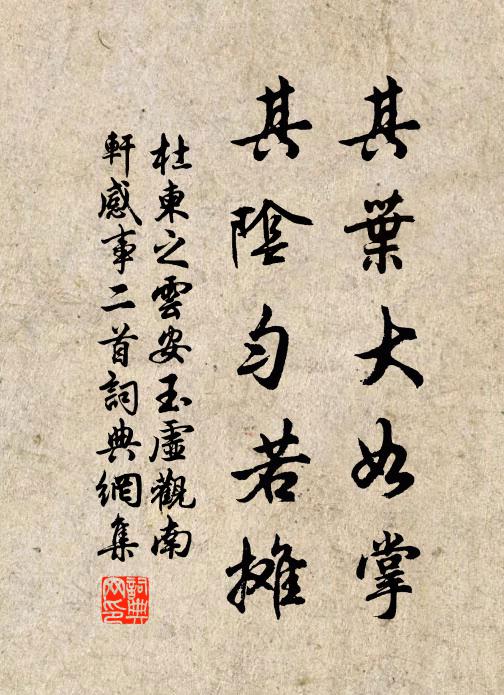 其葉大如掌
其陰勻若攤
杜東之雲安玉虛觀南
軒感事二首詞典網集
詞典
网印